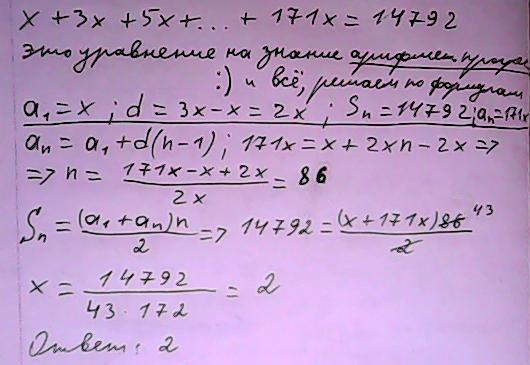 x + 3x + 5x + ... + 171x = 14792
это уравнение на знание арифмет. прогрес
:) и всё, решаем по формулам
a₁ = x ; d = 3x - x = 2x ; Sₙ = 14792 ; aₙ = 171x
aₙ = a₁ + d(n-1) ; 171x = x + 2xn - 2x =>
=> n = (171x - x + 2x)/(2x) = 86
Sₙ = ((a₁ + aₙ)n)/2 => 14792 = ((x + 171x)86)/2 43
x = 14792/(43 · 172) = 2
Ответ: 2